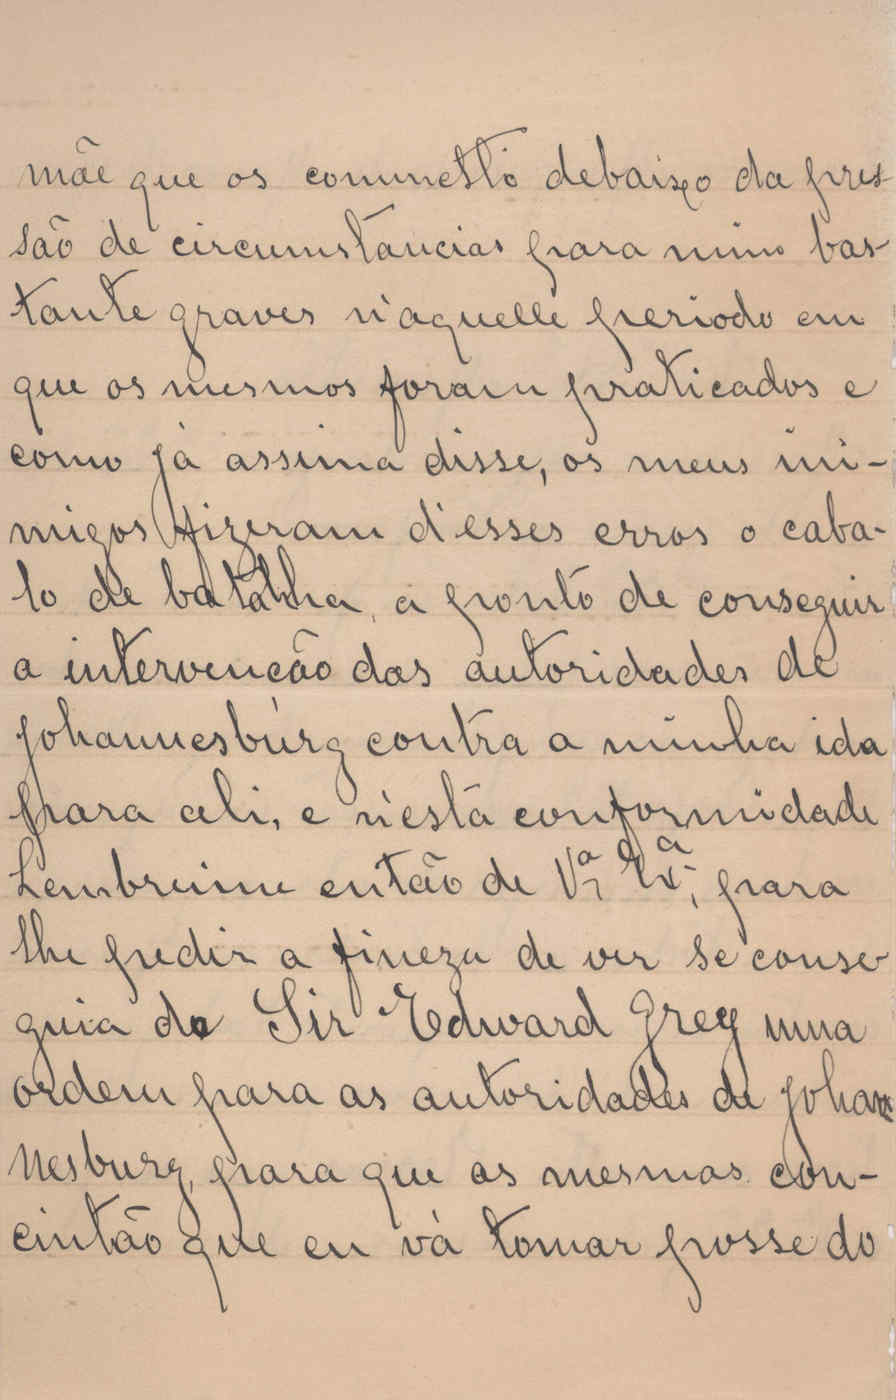 mãe que os conmetti debaixo da pres-
são de circumstancias para mim bas-
tante graves n'aquelle periodo em
que os mesmos foram praticados e
como já assima disse, os meus ini-
migos fizeram d'esses erros o caba-
lo de batalha, a ponto de conseguir
a intervencão das autoridades de
Johannesburg contra a minha ida
para ali, e n'esta conformidade
Lembreime então de Vª Exª, para
lhe pedir a fineza de ver se conse-
guia do Sir Edward Grey uma
ordem para as autoridades de Johan-
nesburg, para que as mesmas con-
cintão que eu vá tomar posse do